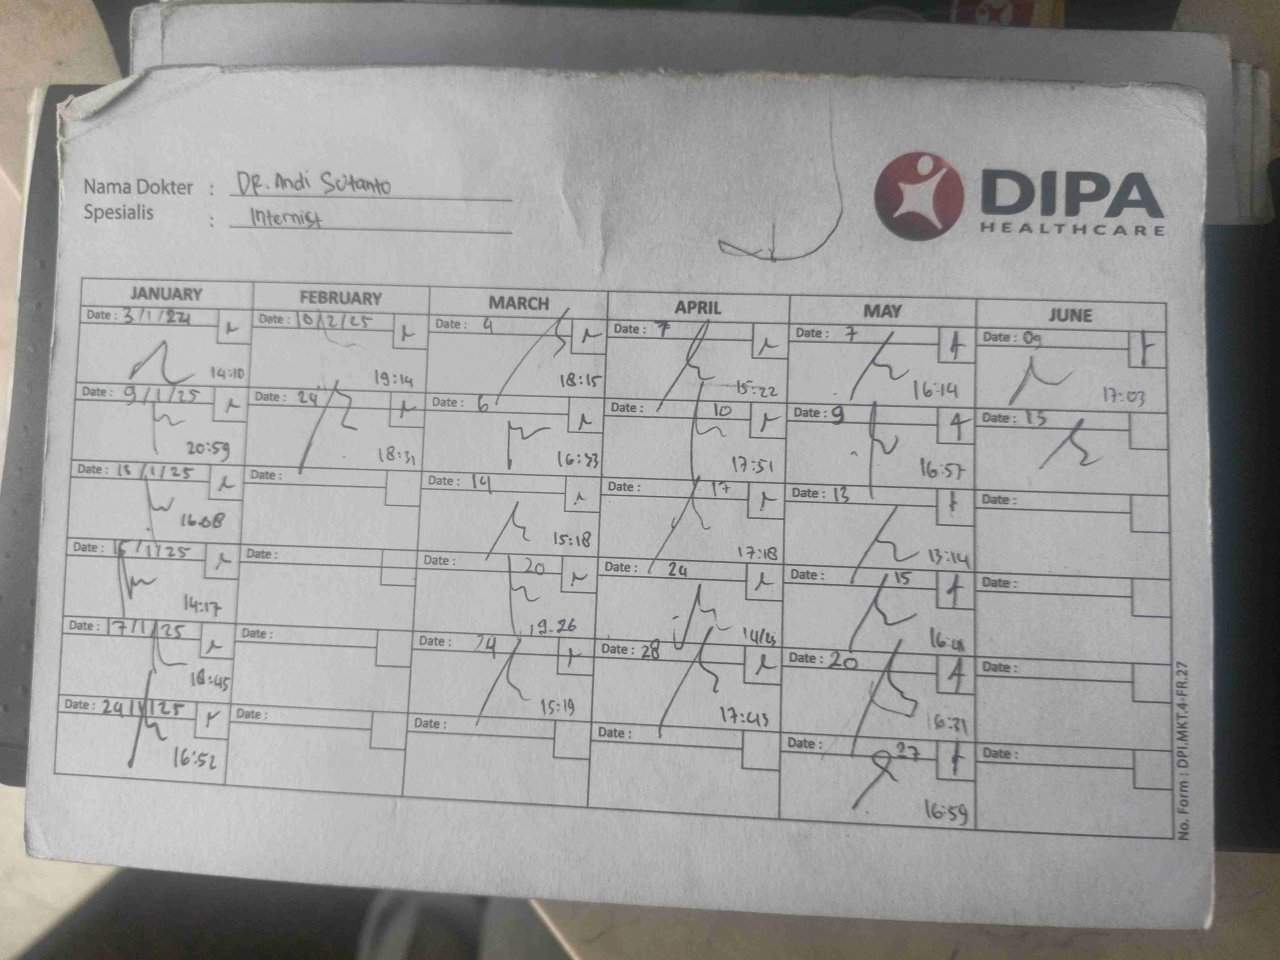 DIPA
HEALTHCARE
Nama Dokter : DR. Andi Sutanto
Spesialis : Internist
JANUARY FEBRUARY MARCH APRIL MAY JUNE
Date : 3/1/24 Date : 10/2/25 Date : 4 Date : 7 Date : 7 Date : 09
14:10 19:14 18:15 15:22 16:14 17:03
Date : 9/1/25 Date : 24 Date : 6 Date : 10 Date : 9 Date : 13
20:59 18:31 16:33 17:51 16:57
Date : 13/1/25 Date : Date : 14 Date : 17 Date : 13 Date :
16:08 15:18 17:18 13:14
Date : 15/1/25 Date : Date : 20 Date : 24 Date : 15 Date :
14:17 19.26
Date : 17/1/25 Date : Date : 24 Date : 28 Date : 20 Date :
18:45 15:19 17:43 16:31
Date : 24/1/25 Date : Date : Date : Date : 27 Date :
16:52 16:59
No. Form : DPI.MKT.4-FR.27